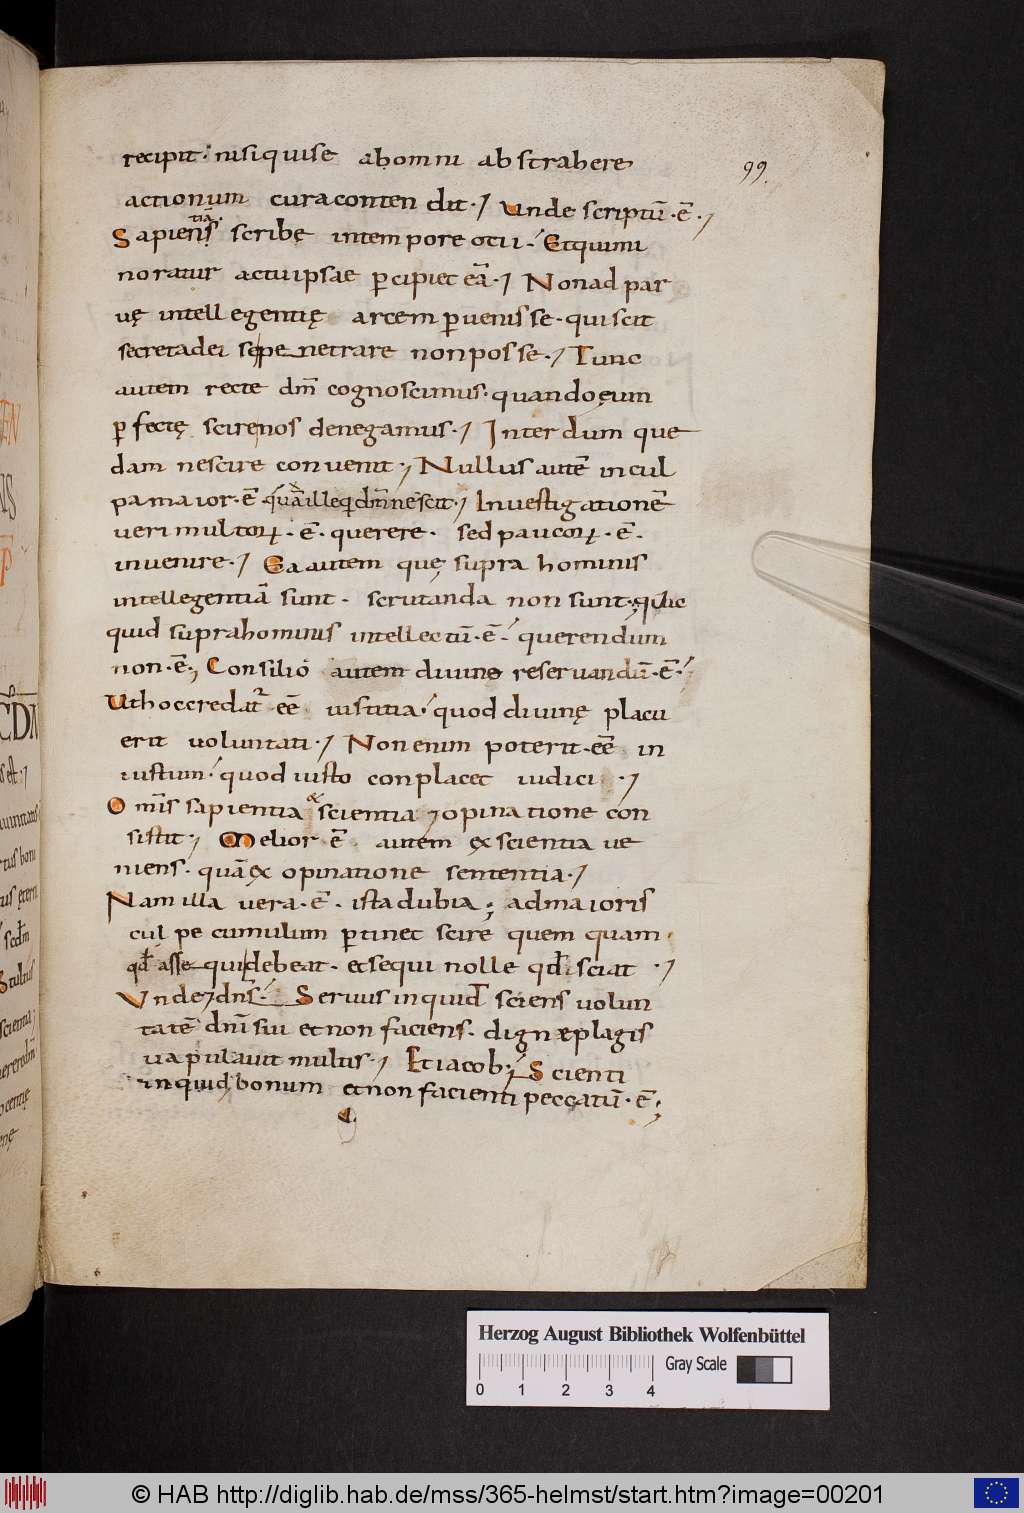 recipit· nisi qui se ab omni abstrahere
99.
actionum cura contendit·; Unde scriptū·ē·;
tiā
Sapiens scribę in tempore otii·́ Et qui mi
noratur actu ipsae p̄cipiet eā·; Non ad par
uę intellegentię arcem p̄uenisse· qui scit
secreta dei se penetrare non posse·; Tunc
autem recte dm̄ cognoscimus· quando eum
p̄fectę scire nos denegamus·; Interdum que
dam nescire conuenit·; Nullus autē in cul
pa maior·ē· quā ille qui dm̄ nescit·; Inuestigationē
ueri multorų·ē· querere· sed paucorų·ē·
inuenire·; Ea autem quę supra hominis
intellegentiā sunt· scrutanda non sunt·; quic
quid supra hominis intellectū·ē·́ querendum
non·ē·; Consilio autem diuino reseruandū·ē·́
Ut hoc credat ēē iustitia·́ quod diuinę placu
erit uoluntati·; Non enim poterit·ēē in
iustum·́ quod iusto conplacet iudici·;
Omīs sapientia ex scientia ⁊ opinatione con
sistit·; Melior·ē· autem ęx scientia ue
niens· quā ęx opinatione sententia·;
Nam illa uera·ē· ista dubia; ad maioris
culpe cumulum p̄tinet scire quem quam·
qđ asse qui debeat· et sequi nolle qđ sciat·;
Unde ⁊ dn̄s·́ Seruus inquid sciens uolun
tatē dn̄i sui et non faciens· digne plagis
uapulauit multis·; Et iacob·; Scienti
inquid bonum et non facienti peccatū·ē·;
Herzog August Bibliothek Wolfenbüttel
Gray Scale
0 1 2 3 4
© HAB http://diglib.hab.de/mss/365-helmst/start.htm?image=00201